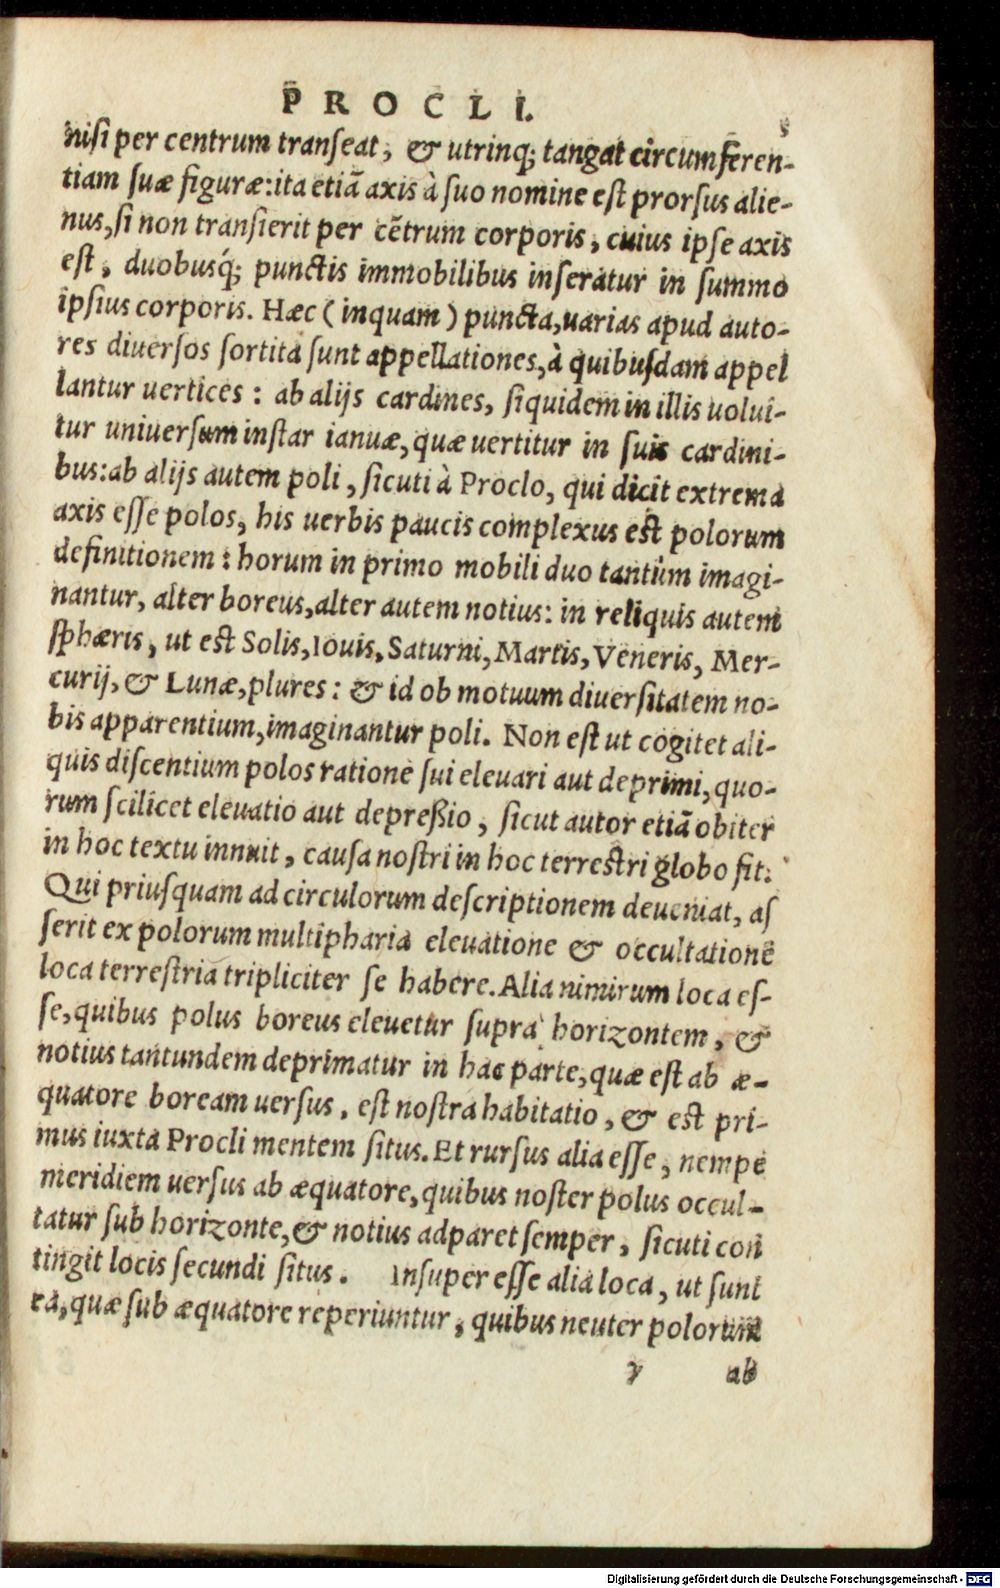 PROCLI. 5
nisi per centrum transeat, & utrinq; tangat circumferen-
tiam suæ figuræ: ita etiã axis à suo nomine est prorsus alie-
nus, si non transierit per cẽtrum corporis, cuius ipse axis
est, duobusq́; punctis immobilibus inseratur in summo
ipsius corporis. Hæc (inquam) puncta, uarias apud auto-
res diuersos sortita sunt appellationes, à quibusdam appel
lantur uertices: ab alijs cardines, siquidem in illis uolui-
tur uniuersum instar ianuæ, quæ uertitur in suis cardini-
bus: ab alijs autem poli, sicuti à Proclo, qui dicit extrema
axis esse polos, his uerbis paucis complexus est polorum
definitionem: horum in primo mobili duo tantùm imagi-
nantur, alter boreus, alter autem notius: in reliquis autem
sphæris, ut est Solis, Iouis, Saturni, Martis, Veneris, Mer-
curij, & Lunæ, plures: & id ob motuum diuersitatem no-
bis apparentium, imaginantur poli. Non est ut cogitet ali-
quis discentium polos ratione sui eleuari aut deprimi, quo-
rum scilicet eleuatio aut depreßio, sicut autor etiã obiter
in hoc textu innuit, causa nostri in hoc terrestri globo fit.
Qui priusquam ad circulorum descriptionem deueniat, as
serit ex polorum multipharia eleuatione & occultatione
loca terrestria tripliciter se habere. Alia nimirum loca es-
se, quibus polus boreus eleuetur supra horizontem, &
notius tantundem deprimatur in hac parte, quæ est ab æ-
quatore boream uersus, est nostra habitatio, & est pri-
mus iuxta Procli mentem situs. Et rursus alia esse, nempe
meridiem uersus ab æquatore, quibus noster polus occul-
tatur sub horizonte, & notius adparet semper, sicuti con
tingit locis secundi situs. Insuper esse alia loca, ut sunt
ea, quæ sub æquatore reperiuntur, quibus neuter polorum
y ab
Digitalisierung gefördert durch die Deutsche Forschungsgemeinschaft - DFG